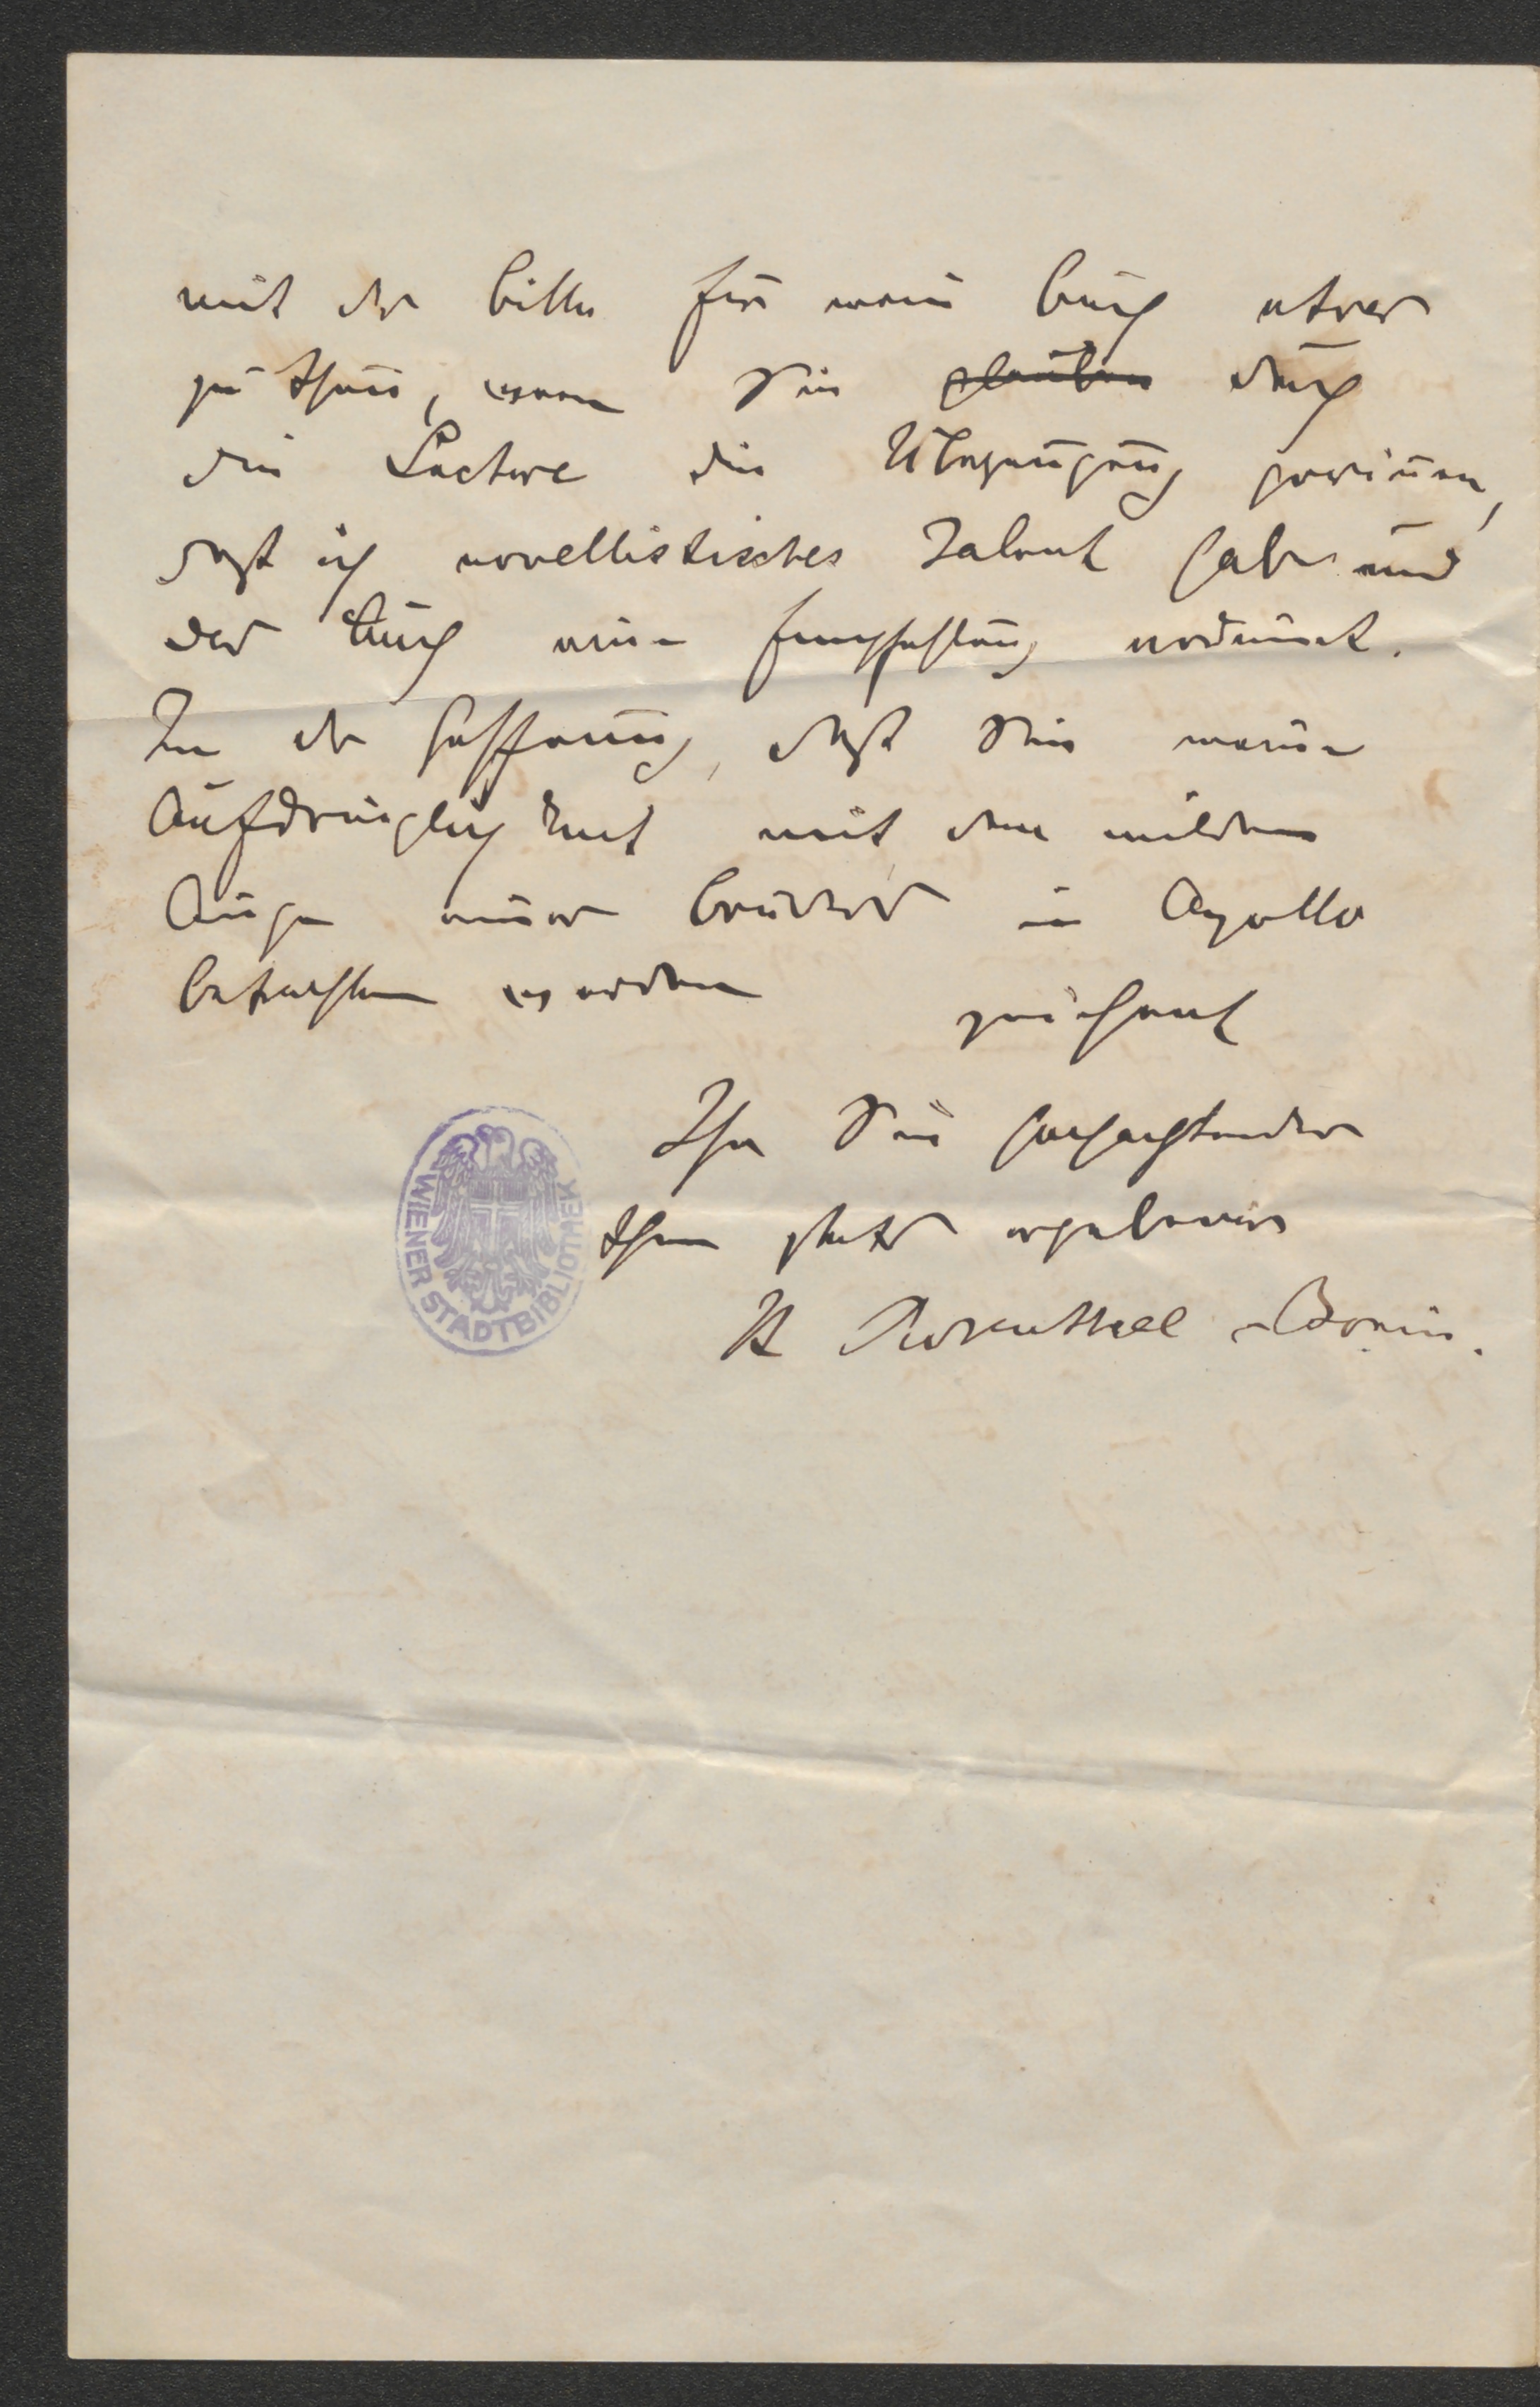 mit der Bitte für mein Buch etwas
zu thun, wenn Sie glauben durch
die Lecture die Überzeugung gewinnen,
daß ich novellistisches Talent habe und
das Buch eine Empfehlung verdient.
In der Hoffnung, daß Sie meine
Aufdringlichkeit mit dem milden
Auge eines Bruders in Apollo
betrachten werden
zeichnet
Ihr Sie hochachtender
Ihnen stets ergebener
H Rosenthal-Bonin.
WIENER STADTBIBLIOTHEK